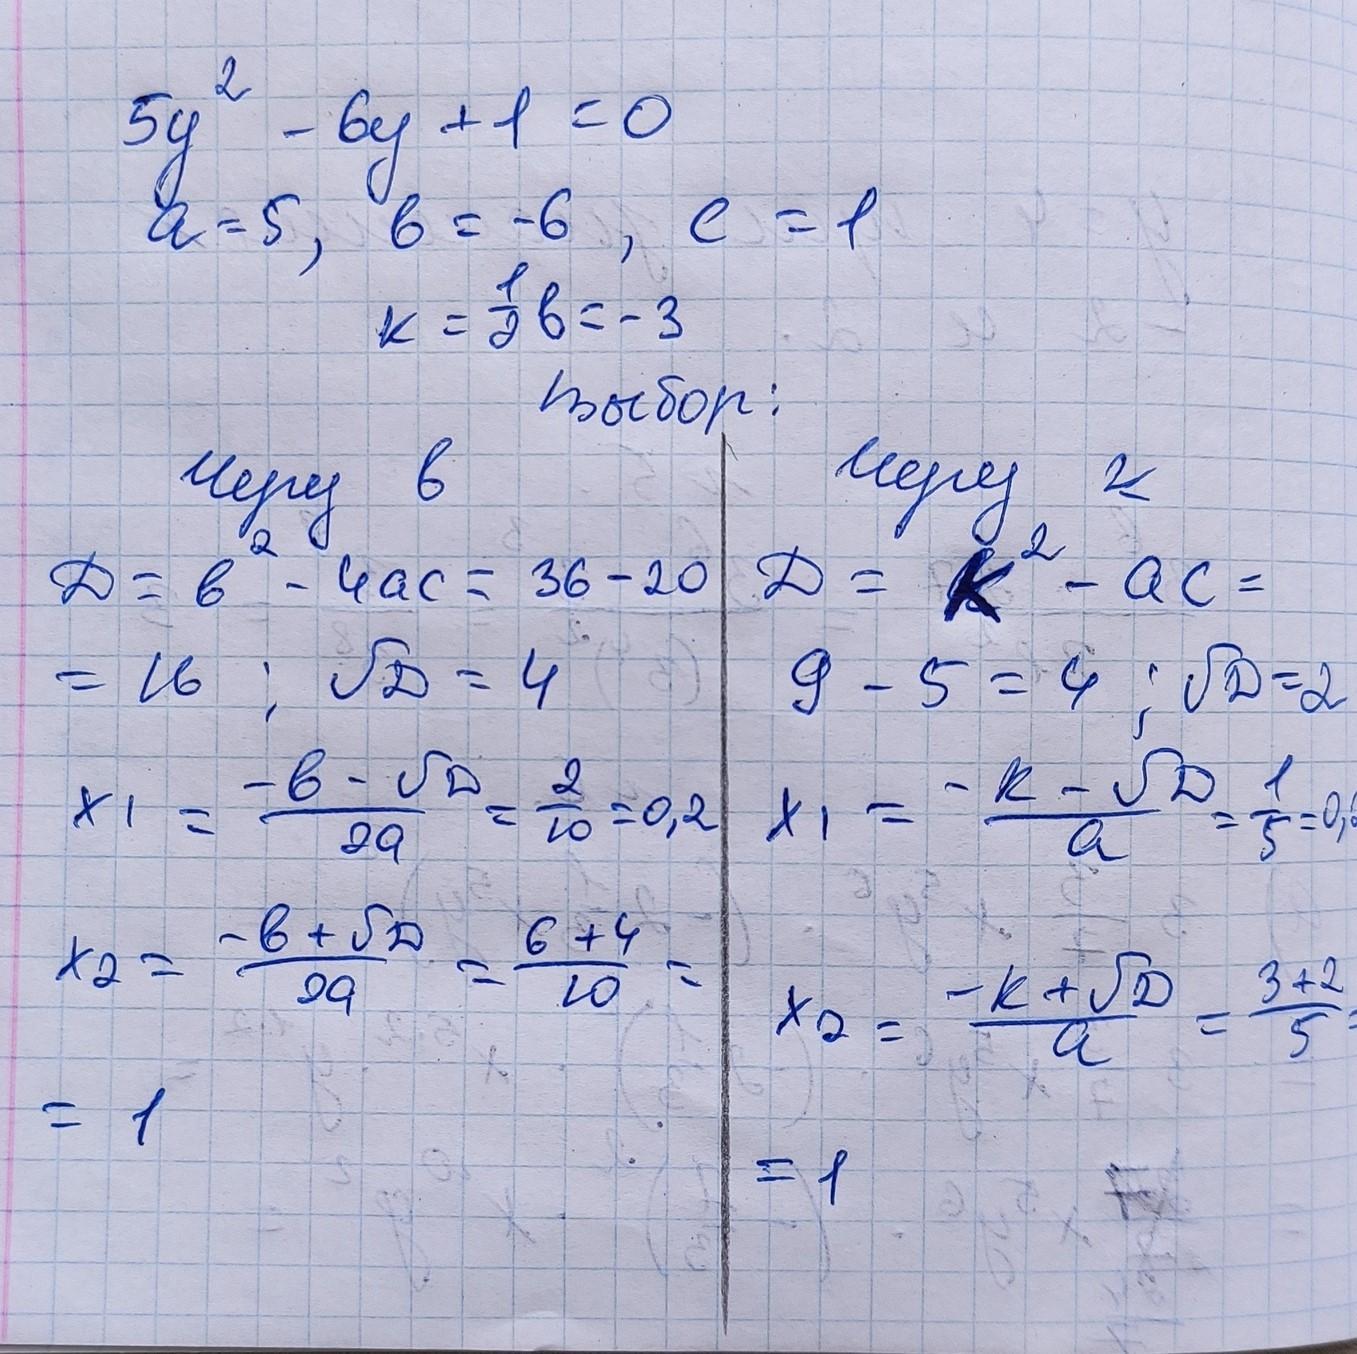 5y² - 6y + 1 = 0
a = 5, b = -6, c = 1
к = 1/2 b = -3
Выбор:
Через b
D = b² - 4ac = 36 - 20
= 16 ; √D = 4
x₁ = (-b - √D)/2a = 2/10 = 0,2
x₂ = (-b + √D)/2a = (6 + 4)/10 =
= 1
Через к
D = к² - ac =
9 - 5 = 4 ; √D = 2
x₁ = (-к - √D)/a = 1/5 = 0,2
x₂ = (-к + √D)/a = (3 + 2)/5 =
= 1